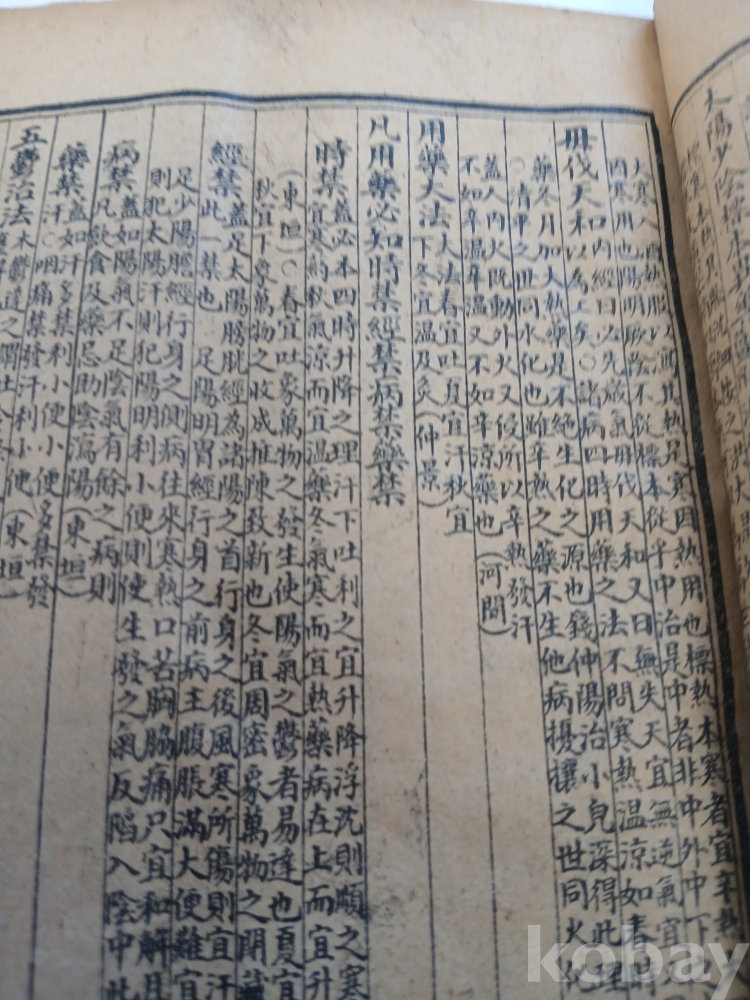 太陽少陰從本從
大寒入
內寒用也陽明厥陰不從標本從乎中治是中者非中外中下
毋伐天和內經曰必先歲氣毋伐天和又曰無失天宜無逆氣宜
以為工矣○諸病四時用藥之法不問寒熱溫涼如春
藥冬月加大熱藥是不絕生化之源也錢仲陽治小兒深得此理
○清平之世同水化也雖辛熱之藥不生他病擾攘之世同火化
蓋人內火旣動外火又侵所以辛熱發汗
不如辛溫辛溫又不如辛涼藥也(河間)
用藥大法大法春宜吐夏宜汗秋宜
下冬宜溫及灸(仲景)
凡用藥必知時禁經禁病禁藥禁
時禁蓋必本四時升降之理汗下吐利之宜升降浮沈則順之寒
宜寒約秋氣涼而宜溫藥冬氣寒而宜熱藥病在上而宜升
(東垣)○春宜吐象萬物之發生使陽氣之鬱者易達也夏宜
秋宜下象萬物之收成推陳致新也冬宜周密象萬物之閉藏
經禁蓋足太陽膀胱經為諸陽之首行身之後風寒所傷則宜汗
此一禁也 足陽明胃經行身之前病主腹脹滿大便難宜
足少陽膽經行身之側病往來寒熱口苦胸脇痛只宜和解且
則犯太陽汗則犯陽明利小便則使生發之氣反陷入陰中此
病禁蓋如陽氣不足陰氣有餘之病則
凡飲食及藥忌助陰瀉陽(東垣)
藥禁蓋如汗多禁利小便小便多禁發
汗○咽痛禁發汗利小便(東垣)
五鬱治法木鬱達之謂吐
kobay